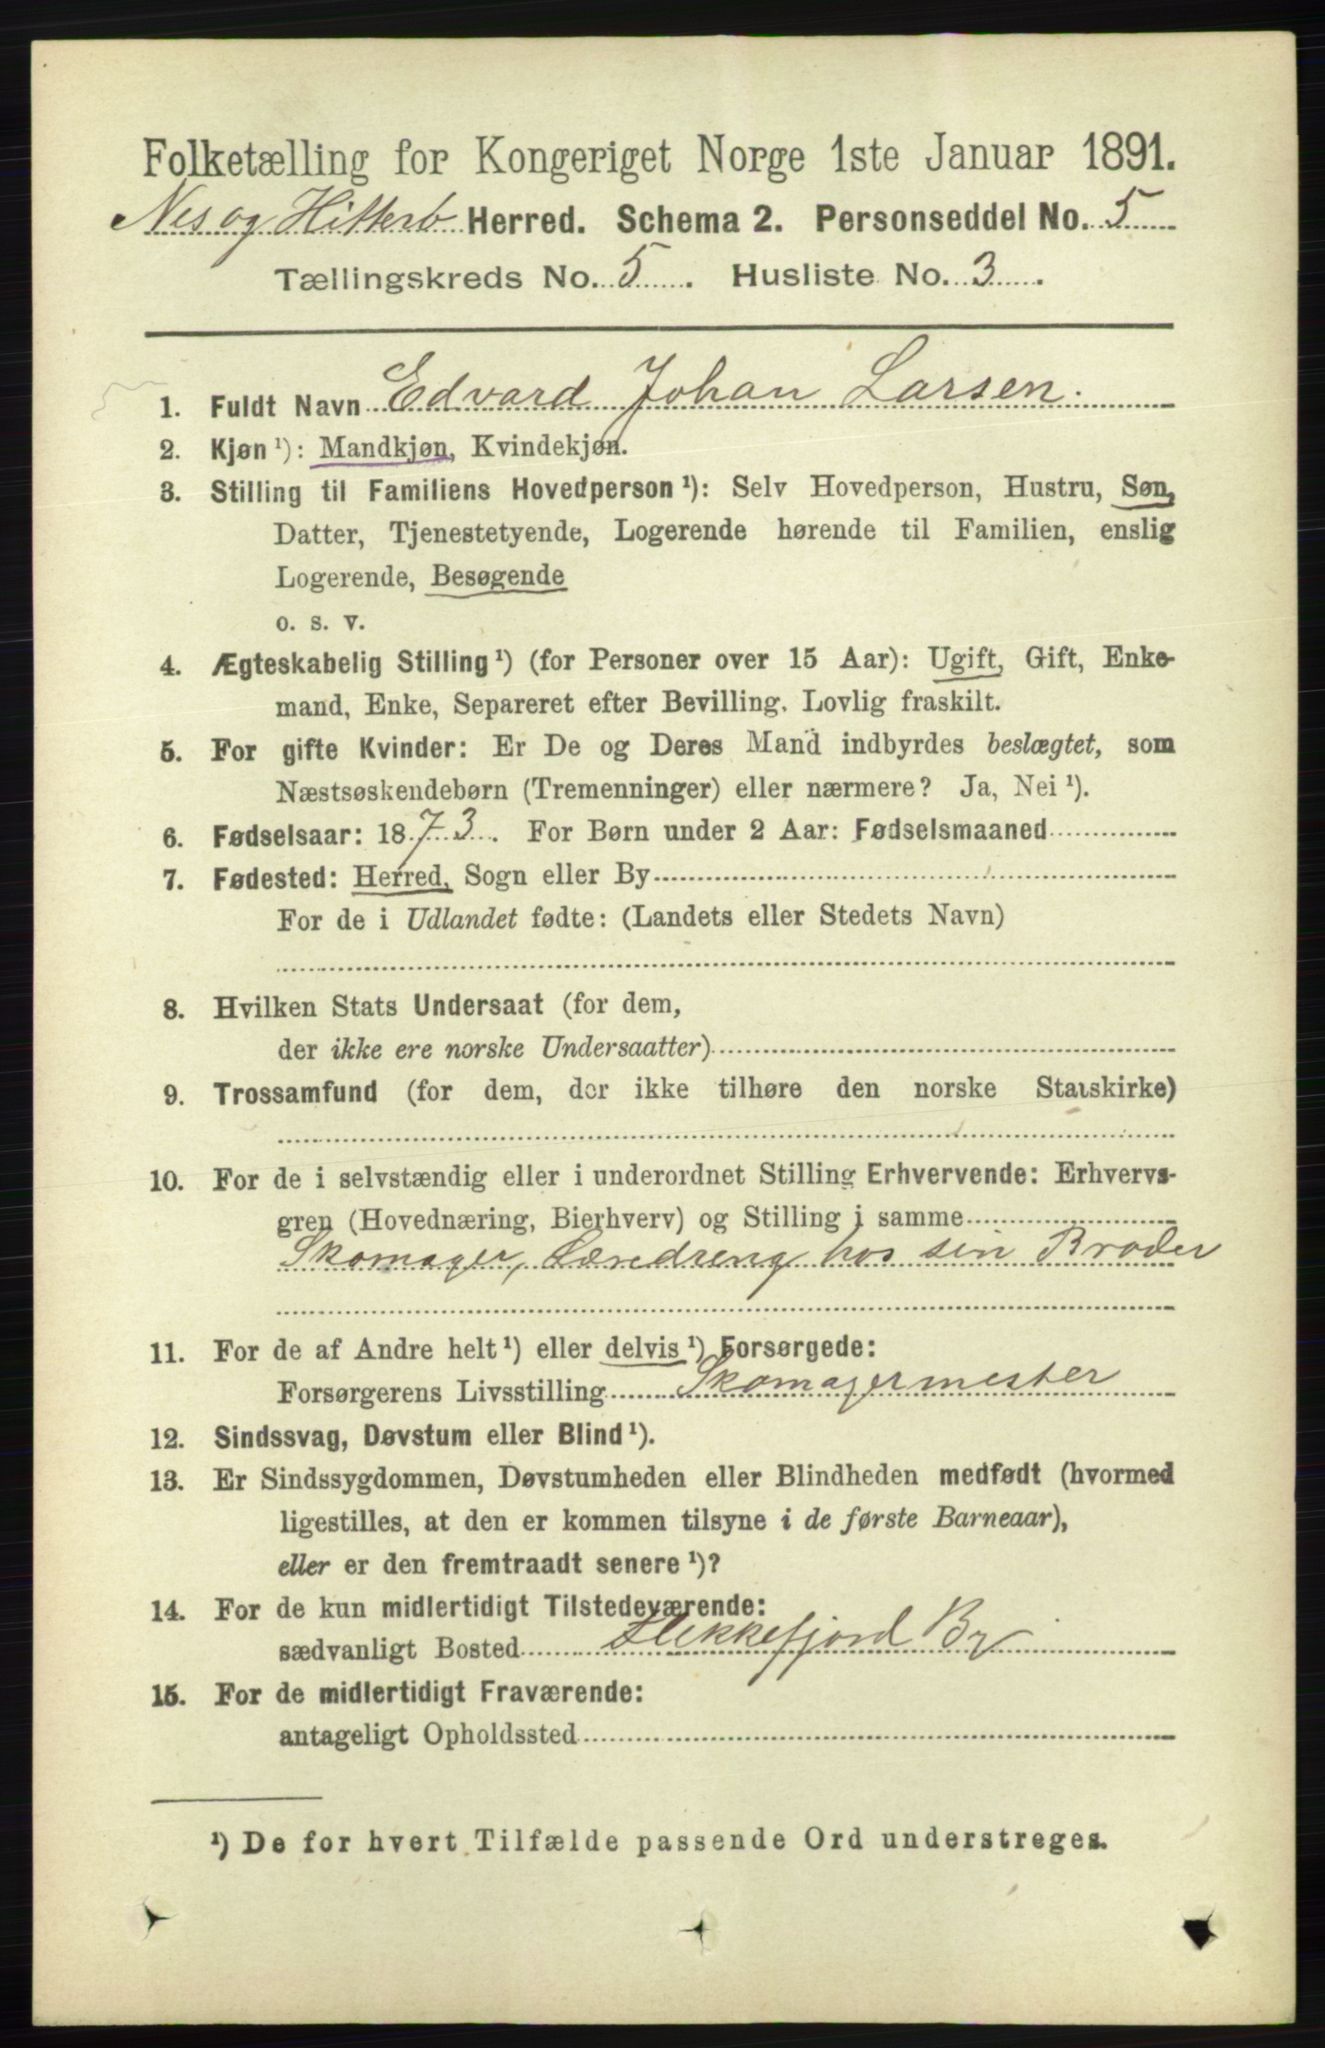 Folketælling for Kongeriget Norge 1ste Januar 1891.
Nes og Hitterö Herred. Schema 2. Personseddel No. 5
Tællingskreds No. 5. Husliste No. 3.
1. Fuldt Navn Edvard Johan Larsen.
2. Kjøn ¹): Mandkjøn, Kvindekjøn.
3. Stilling til Familiens Hovedperson ¹): Selv Hovedperson, Hustru, Søn,
Datter, Tjenestetyende, Logerende hørende til Familien, enslig
Logerende, Besøgende
o. s. v.
4. Ægteskabelig Stilling ¹) (for Personer over 15 Aar): Ugift, Gift, Enke-
mand, Enke, Separeret efter Bevilling. Lovlig fraskilt.
5. For gifte Kvinder: Er De og Deres Mand indbyrdes beslægtet, som
Næstsøskendebørn (Tremenninger) eller nærmere? Ja, Nei ¹).
6. Fødselsaar: 1873. For Børn under 2 Aar: Fødselsmaaned
7. Fødested: Herred, Sogn eller By
For de i Udlandet fødte: (Landets eller Stedets Navn)
8. Hvilken Stats Undersaat (for dem,
der ikke ere norske Undersaatter)
9. Trossamfund (for dem, der ikke tilhøre den norske Statskirke)
10. For de i selvstændig eller i underordnet Stilling Erhvervende: Erhvervs-
gren (Hovednæring, Bierhverv) og Stilling i samme
Skomager, Læredreng hos sin Broder
11. For de af Andre helt ¹) eller delvis ¹) Forsørgede:
Forsørgerens Livsstilling Skomagermester
12. Sindssvag, Døvstum eller Blind ¹).
13. Er Sindssygdommen, Døvstumheden eller Blindheden medfødt (hvormed
ligestilles, at den er kommen tilsyne i de første Barneaar),
eller er den fremtraadt senere ¹)?
14. For de kun midlertidigt Tilstedeværende:
sædvanligt Bosted Flekkefjord By
15. For de midlertidigt Fraværende:
antageligt Opholdssted
¹) De for hvert Tilfælde passende Ord understreges.